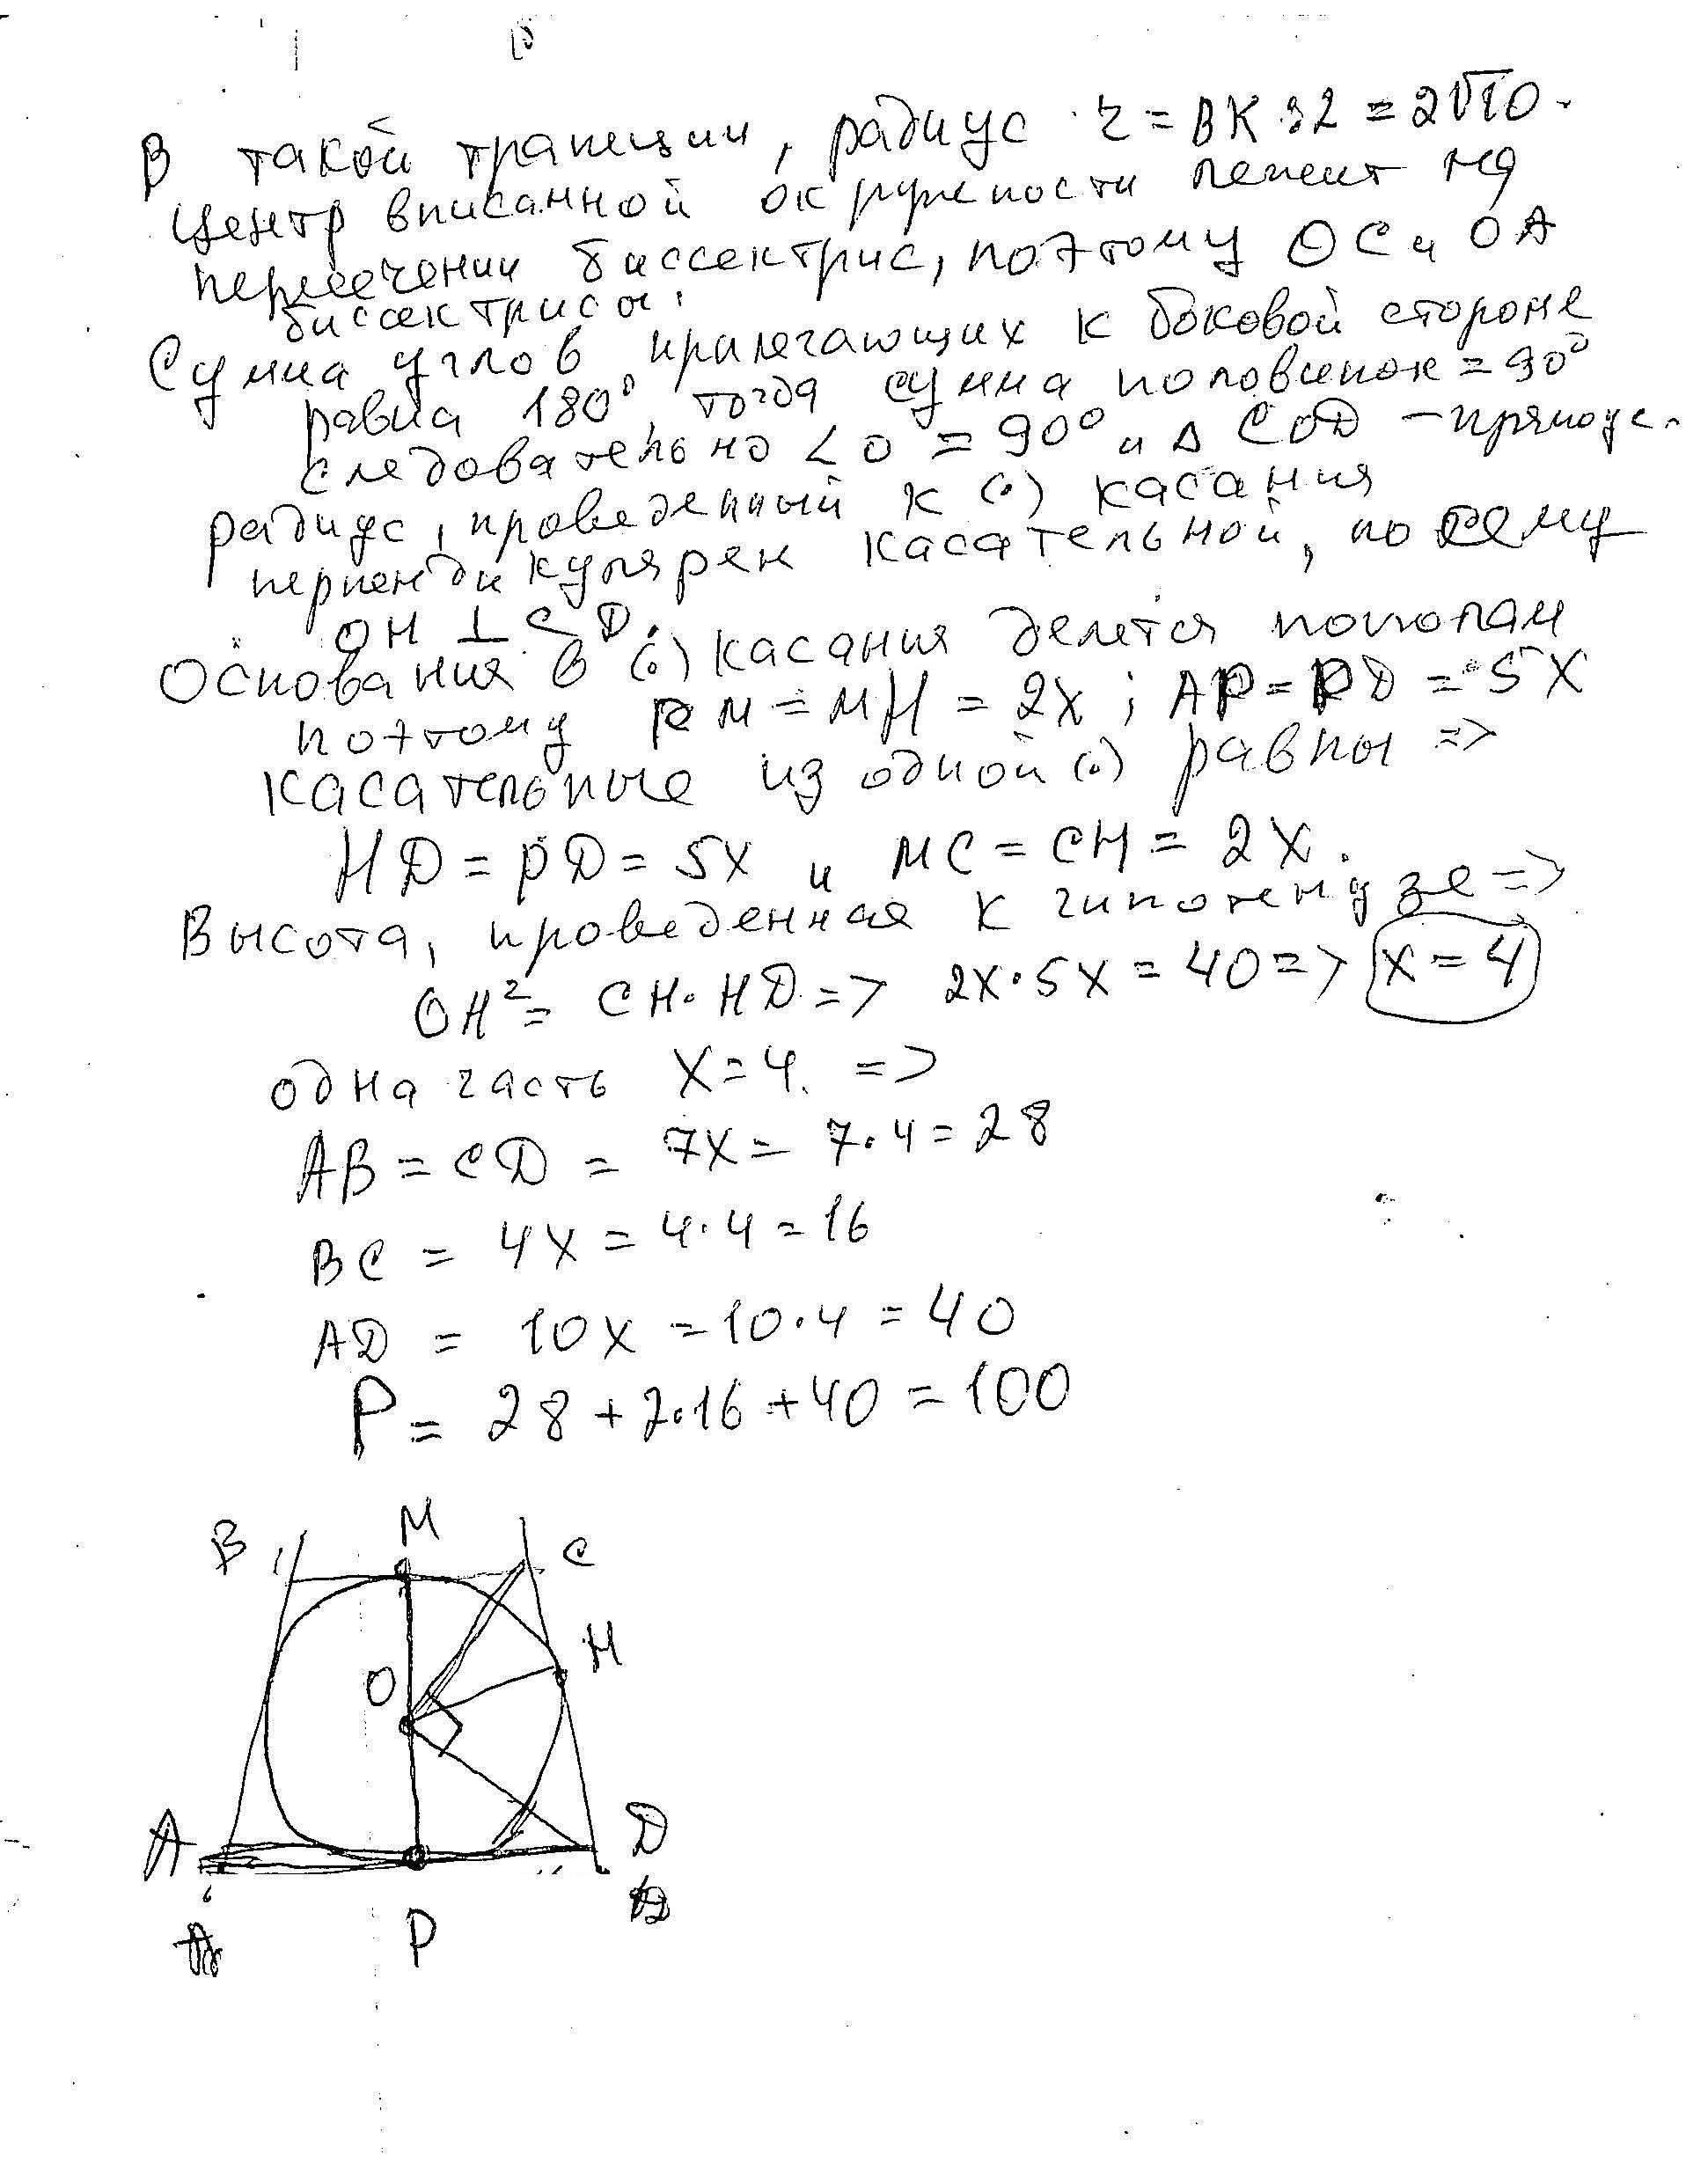 В такой трапеции, радиус r = ВК : 2 = 2√10.
Центр вписанной окружности лежит на
пересечении биссектрис, поэтому ОС и ОА
биссектрисы.
Сумма углов, прилегающих к боковой стороне
равна 180°, тогда сумма половинок = 90°
следовательно ∠О = 90° и Δ СОD – прямоуг.
радиус, проведенный к (·) касания
перпендикулярен касательной, по сему
ОН ⊥ СD.
Основания в (·) касания делется пополам
поэтому ВМ = МН = 2х ; АР = РD = 5х
касательные из одной (·) равны =>
НD = РD = 5х и МС = СН = 2х.
Высота, проведенная к гипотенузе =>
ОН² = СН · НD => 2х · 5х = 40 => х = 4
одна часть х = 4. =>
АВ = СD = 7х = 7·4 = 28
ВС = 4х = 4·4 = 16
АD = 10х = 10·4 = 40
Р = 28 + 2·16 + 40 = 100
В М С
О Н
А D
Р